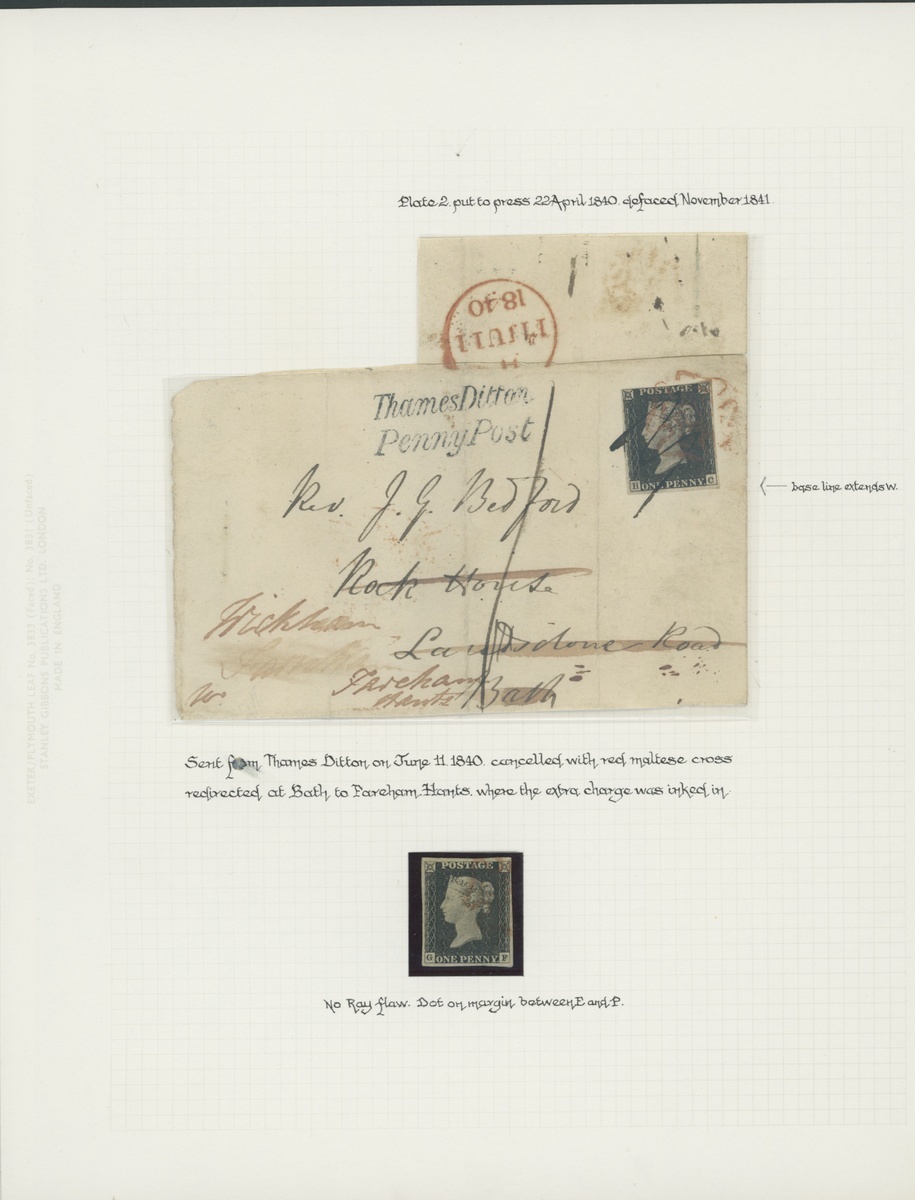 Plate 2. put to press 22 April 1840. defaced November 1841.
1840
11 JU 11
Thames Ditton
Penny Post
POSTAGE
B ONE PENNY C
base line extends w.
Rev. J. G. Bedford
Rock House
Wickham
Lansdowne Road
Fareham
Hants
Bath
Sent from Thames Ditton on June 11. 1840. cancelled with red maltese cross
redirected at Bath to Fareham Hants. where the extra charge was inked in.
POSTAGE
G ONE PENNY F
No Ray flaw. Dot on margin between E and P.
EXETER/PLYMOUTH LEAF No. 3833 (Faced) / No. 3831 (Unfaced)
STANLEY GIBBONS PUBLICATIONS LTD. LONDON
MADE IN ENGLAND